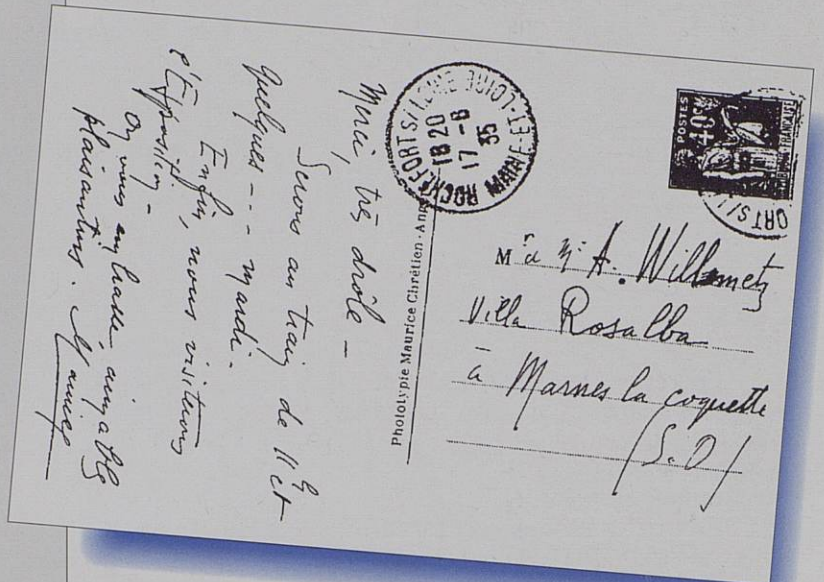 Merci, très drôle –
Serons au train de 11h et
quelques - - - mardi.
Enfin, nous visiterons
l'Exposition –
On vous embrasse, aimables
plaisantins.
Phototypie Maurice Chrétien - Ang
ROCHEFORT S/LOIRE MAINE-ET-LOIRE
18 20
17 - 8
35
POSTES
40c
ORT S/L
M r à Me A. Willemetz
Villa Rosalba
à Marnes la coquette
(S.O)